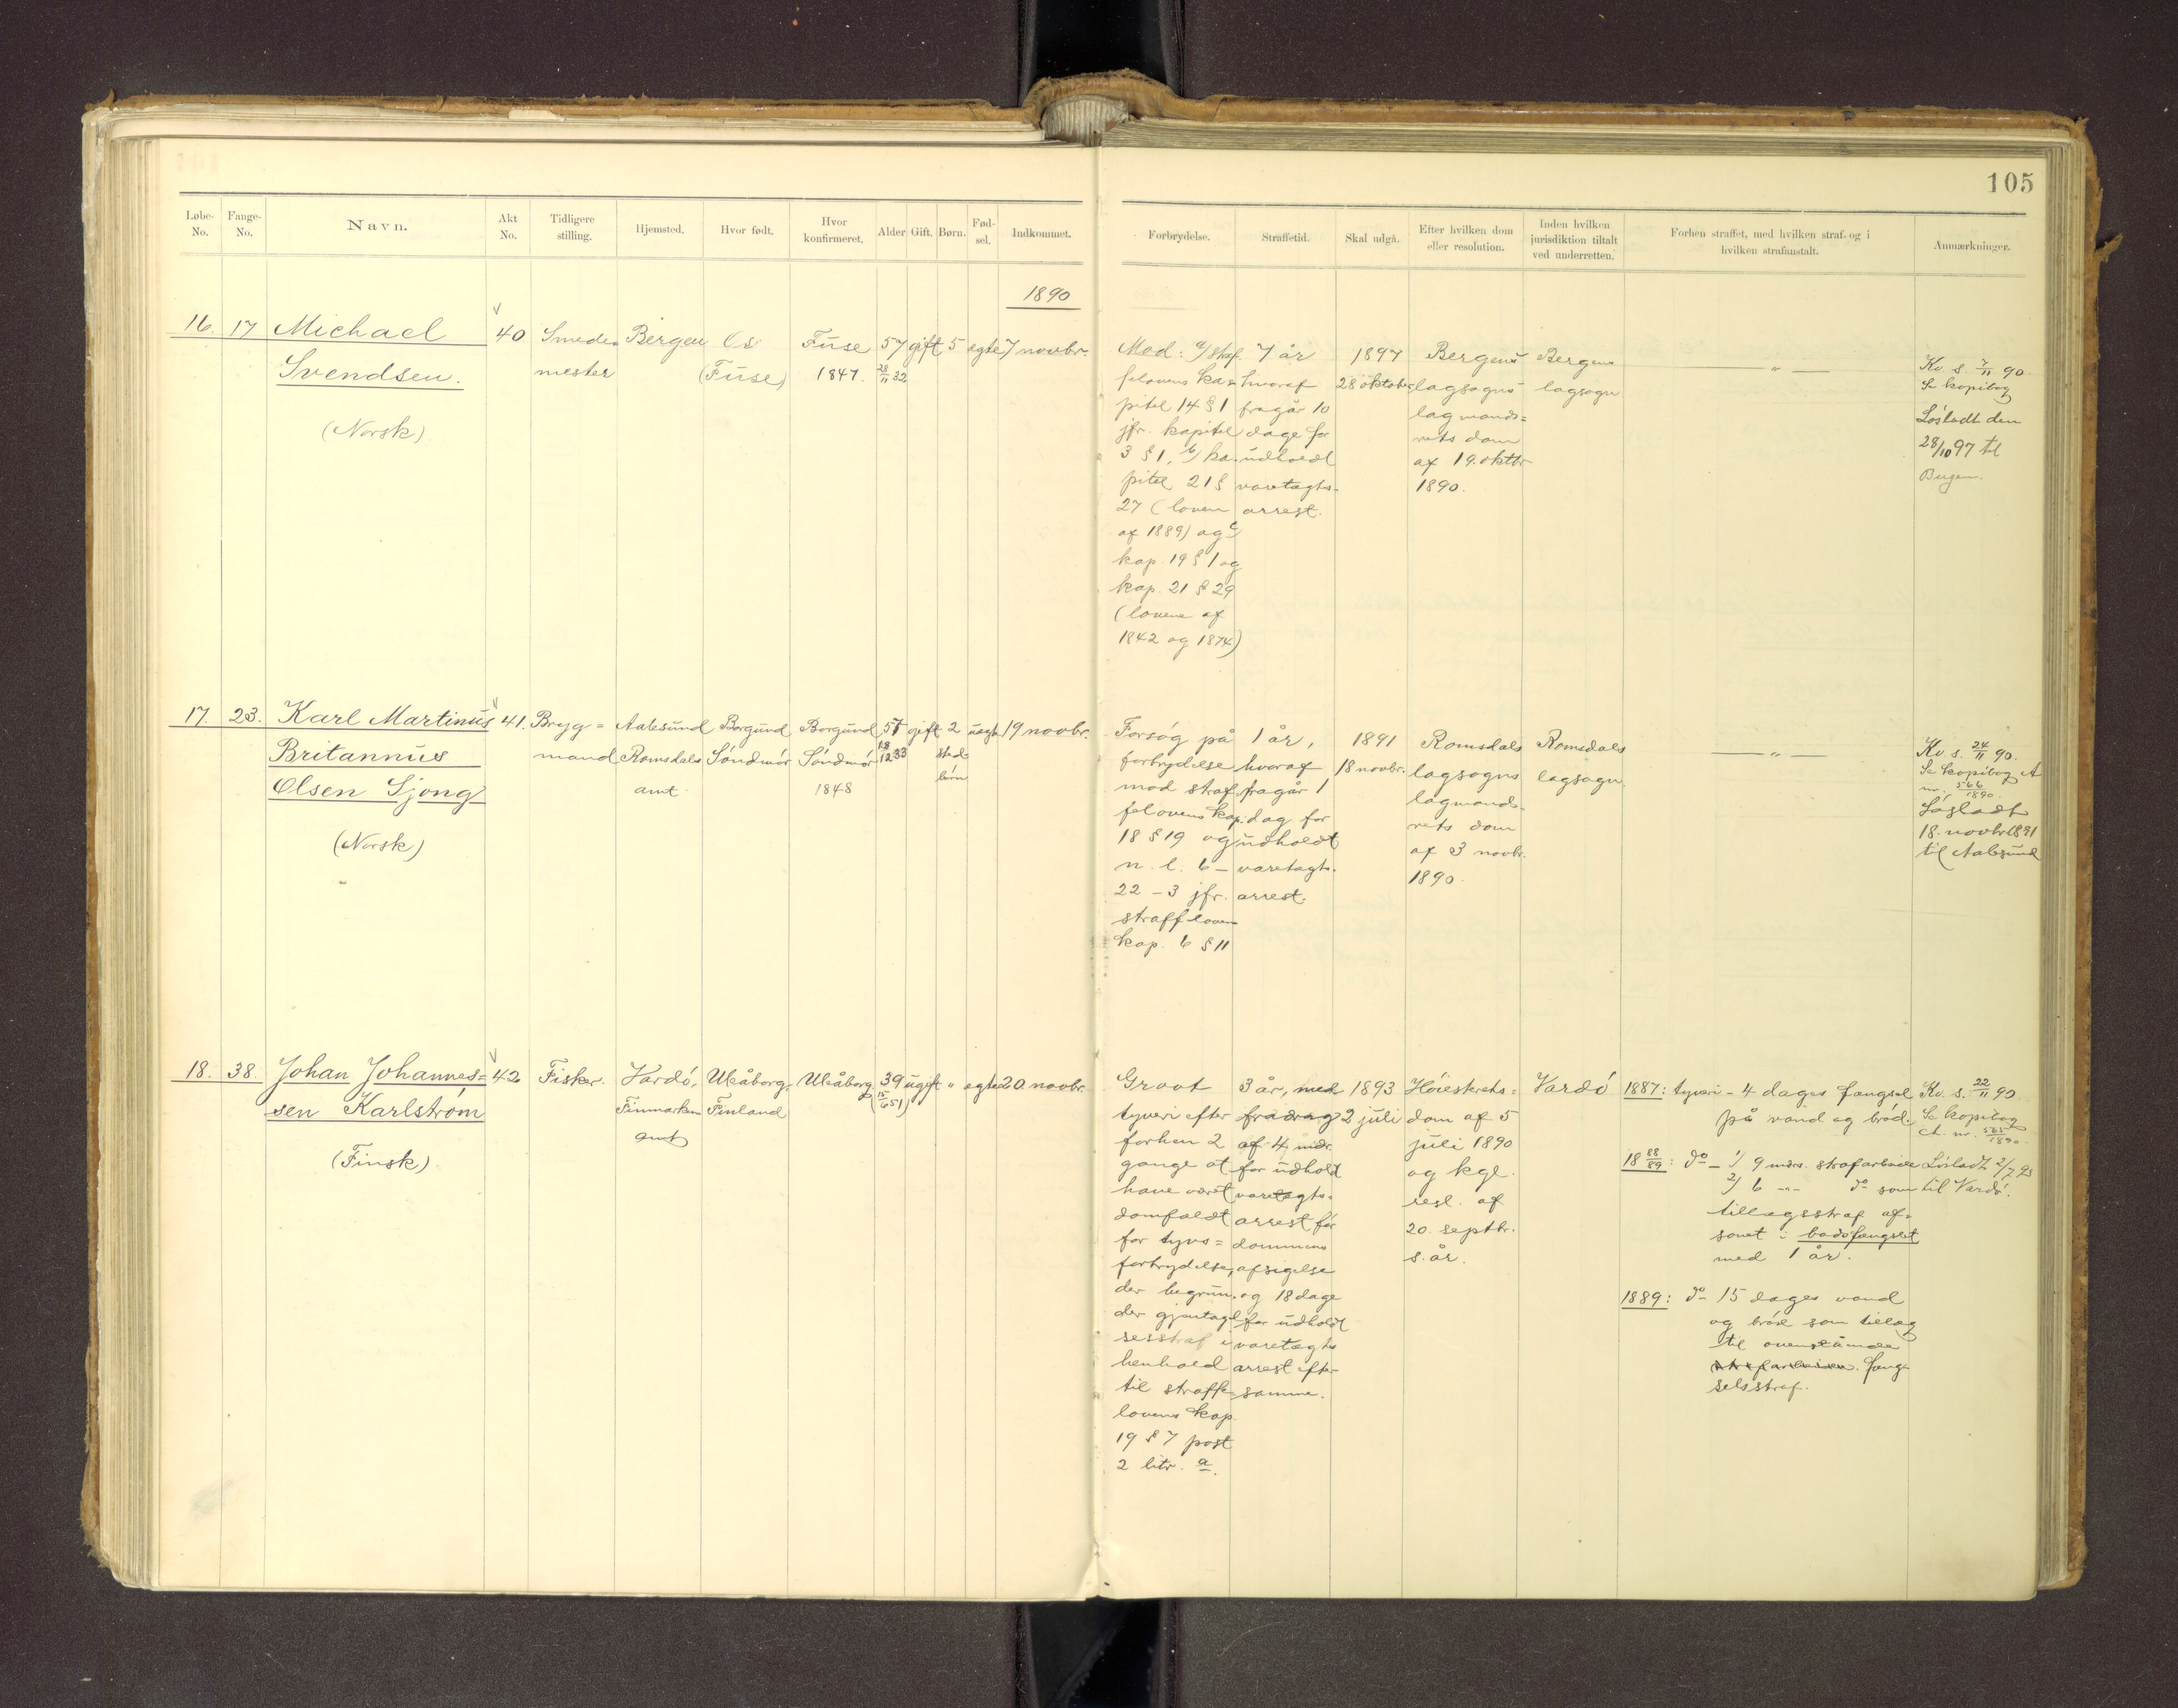 105
Løbe-No.
Fange-No.
Navn.
Akt No.
Tidligere stilling.
Hjemsted.
Hvor født.
Hvor konfirmeret.
Alder
Gift.
Børn.
Fød-sel.
Indkommet.
Forbrydelse.
Straffetid.
Skal udgå.
Efter hvilken dom eller resolution.
Inden hvilken jurisdiktion tiltalt ved underretten.
Forhen straffet, med hvilken straf og i hvilken strafanstalt.
Anmærkninger.
1890
16. 17 Michael
Svendsen.
(Norsk)
40
Smede=
mester
Bergen
Os
(Fuse)
Fuse
1847.
57
28/11 32
gift
5
ægte
7 novbr.
Mod: a/ straf=
felovens ka=
pitel 14 § 1
jfr. kapitel
3 § 1, b/ ka=
pitel 21 §
27 (loven
af 1889) og c/
kap. 19 § 1 og
kap. 21 § 29
(lovene af
1842 og 1874)
7 år
hvoraf
fragår 10
dage for
udholdt
varetægts-
arrest.
1897
28 oktober
Bergens
lagsogns
lagmands=
rets dom
af 19. oktbr
1890.
Bergens
lagsogn
— " —
Kv. s. 7/11 90.
Se kopibog
Løsladt den
28/10 97 til
Bergen.
17. 23. Karl Martinus
Britannus
Olsen Sjong
(Norsk)
41.
Bryg=
mand
Aalesund
Romsdals
amt
Borgund
Söndmör
Borgund
Söndmör
1848
57
18/12 33
gift
2
sted
börn
uægte
19 novbr.
Forsøg på
forbrydelse
mod straf=
felovens kap.
18 § 19 og
n. l. 6 –
22 – 3 jfr.
straffloven
kap. 6 § 11
1 år,
hvoraf
fragår 1
dag for
udholdt
varetægts-
arrest.
1891
18 novbr.
Romsdals
lagsogns
lagmands-
rets dom
af 3 novbr.
1890.
Romsdals
lagsogn.
— " —
Kv. s. 24/11 90.
Se kopibog A
nr. 566/1890.
Løsladt
18. novbr 1891
til Aalesund
18. 38. Johan Johannes=
sen Karlström
(Finsk)
42
Fisker.
Vardö,
Finmarkens
amt
Uleåborg,
Finland
Uleåborg
39
(15/6 51)
ugift
"
ægte
20. novbr.
Grovt
tyveri efter
forhen 2
gange at
have været
domfældt
for tyvs=
forbrydelse,
der begrun-
der gjentagel=
sesstraf i
henhold
til straffe=
lovens kap.
19 § 7 post
2 litr. a.
3 år, med
fradrag
af 4 mdr.
for udholdt
varetægts-
arrest før
dommens
afsigelse
og 18 dage
for udholdt
varetægts
arrest efter
samme.
1893
2 juli
Höiesterets=
dom af 5
juli 1890
og kgl.
resl. af
20. septbr.
s. år.
Vardö
1887: tyveri – 4 dages fængsel
på vand og bröd.
18 88/89: do – 1/ 9 mdrs. strafarbeide
2/ 6 –"– do som
tillægsstraf af=
sonet i bodsfængslet
med 1 år.
1889: do – 15 dages vand
og bröd som tillæg
til ovenstående
strafarbeide. fæng
selsstraf.
Kv. s. 22/11 90.
Se kopibog
A. nr. 565/1890.
Løsladt 2/7 93
til Vardö.